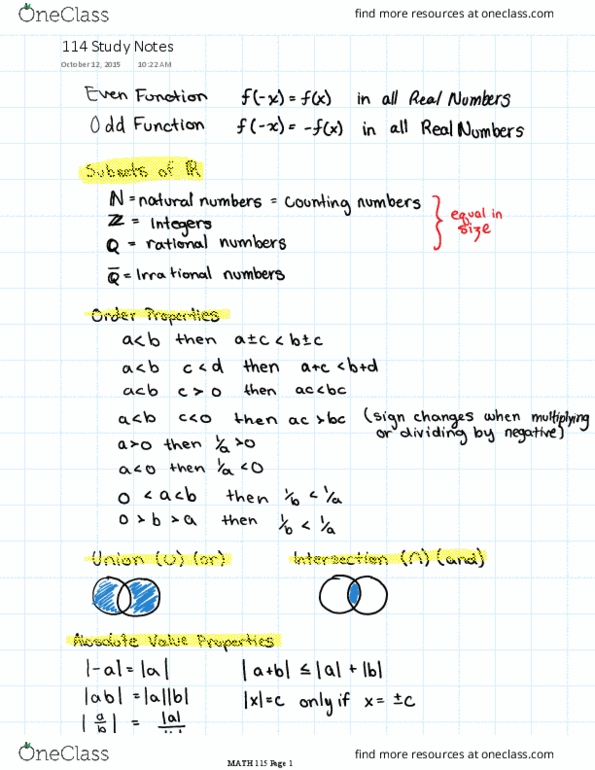 OneClass
find more resources at oneclass.com
114 Study Notes
October 12, 2015 10:22 AM
Even Function f(-x) = f(x) in all Real Numbers
Odd Function f(-x) = -f(x) in all Real Numbers
Subsets of ℝ
N = natural numbers = counting numbers
Z = Integers
Q = rational numbers
equal in
size
Q̅ = Irrational numbers
Order Properties
a<b then a±c < b±c
a<b c<d then a+c < b+d
a<b c>0 then ac<bc
a<b c<0 then ac > bc (sign changes when multiplying
or dividing by negative)
a>0 then 1/a >0
a<0 then 1/a <0
0 < a<b then 1/b < 1/a
0 > b > a then 1/b < 1/a
Union (∪) (or) Intersection (∩) (and)
Absolute Value Properties
|-a| = |a| |a+b| ≤ |a| + |b|
|ab| = |a||b| |x|=c only if x = ±c
|a/b| = |a|
OneClass
find more resources at oneclass.com
MATH 115 Page 1